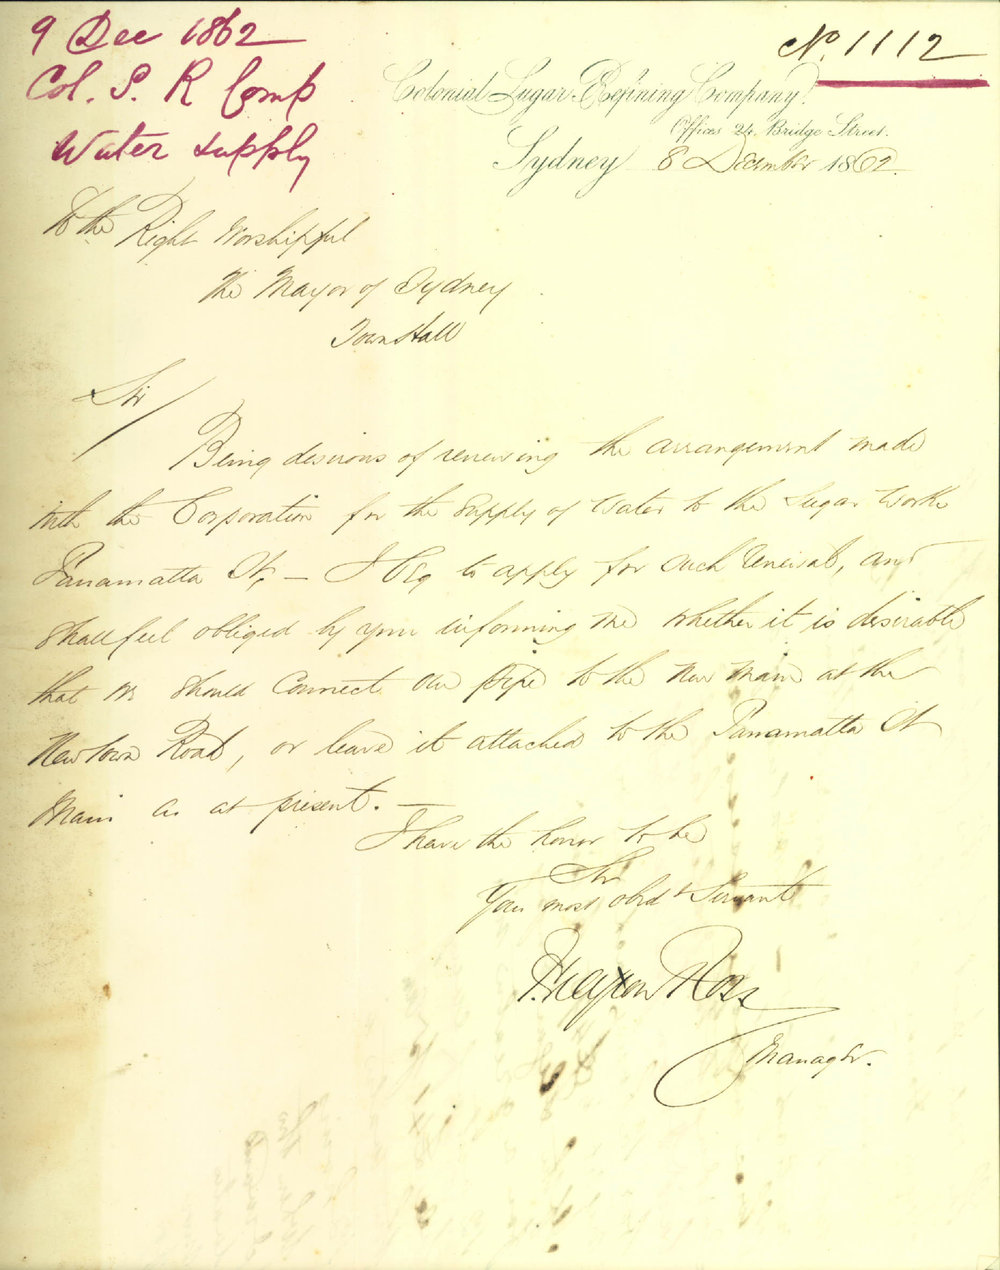 9 Dec 1862
Col. S. R Comp
Water supply
No. 1112
Colonial Sugar Refining Company.
Offices 24 Bridge Street.
Sydney 8 December 1862.
To the Right Worshipful
The Mayor of Sydney
Town Hall
Sir/
Being desirous of renewing the arrangement made
with the Corporation for the Supply of Water to the Sugar Works
Parramatta St, — I beg to apply for such renewal, and
shall feel obliged by your informing me whether it is desirable
that we should connect our pipe to the new main at the
Newtown Road, or leave it attached to the Parramatta St
Main as at present. —
I have the honor to be
Sir
Your most obdt Servant
Ross
Manager.